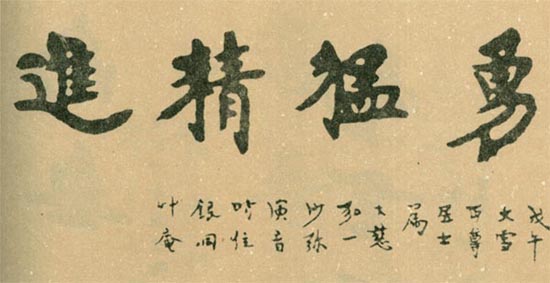 勇猛精進
戊午
大雪
丏尊
居士
属
大慈
弘一
沙弥
演音
时住
銀洞
叶庵